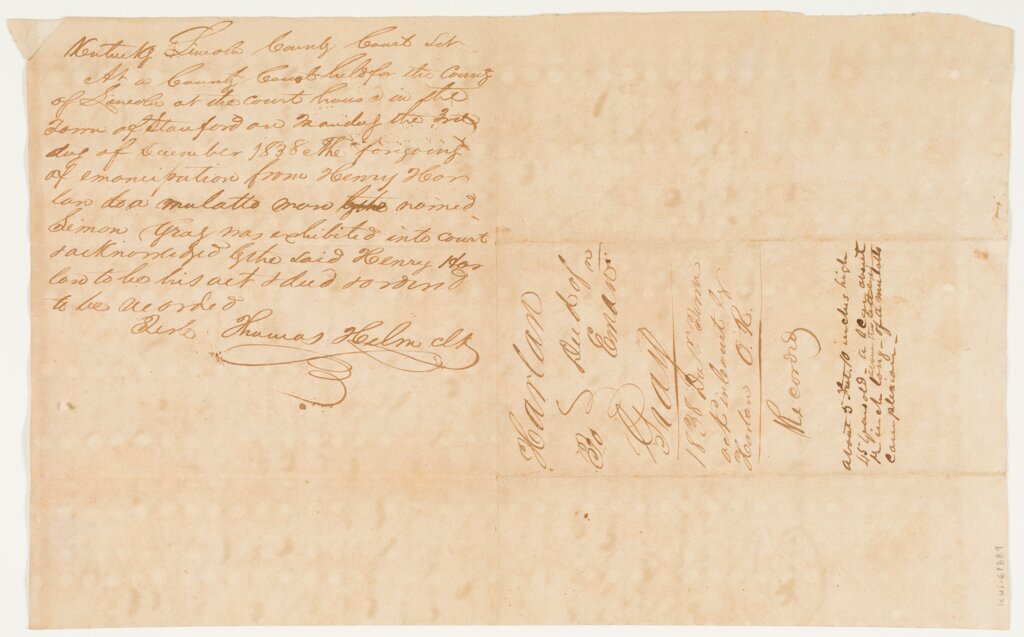 Kentucky Lincoln County Court Sct
At a County Court held for the County
of Lincoln at the court house in the
Town of Stanford on Monday the 3rd
day of December 1838 The foregoing
of emancipation from Henry Har
lan to a mulatto man named
Simon Gray was exhibited into court
& acknowledged by the said Henry Har
lan to be his act & deed & ordered
to be recorded
Teste Thomas Helm Clk
Harlan
To } Deed of
Eman
Gray
1838
ackd in court by
Harlan O. R.
Recorded
about 5 feet 10 inches high
45 years old - a
inch long - of a mulatto
complexion -
ICHI-67889